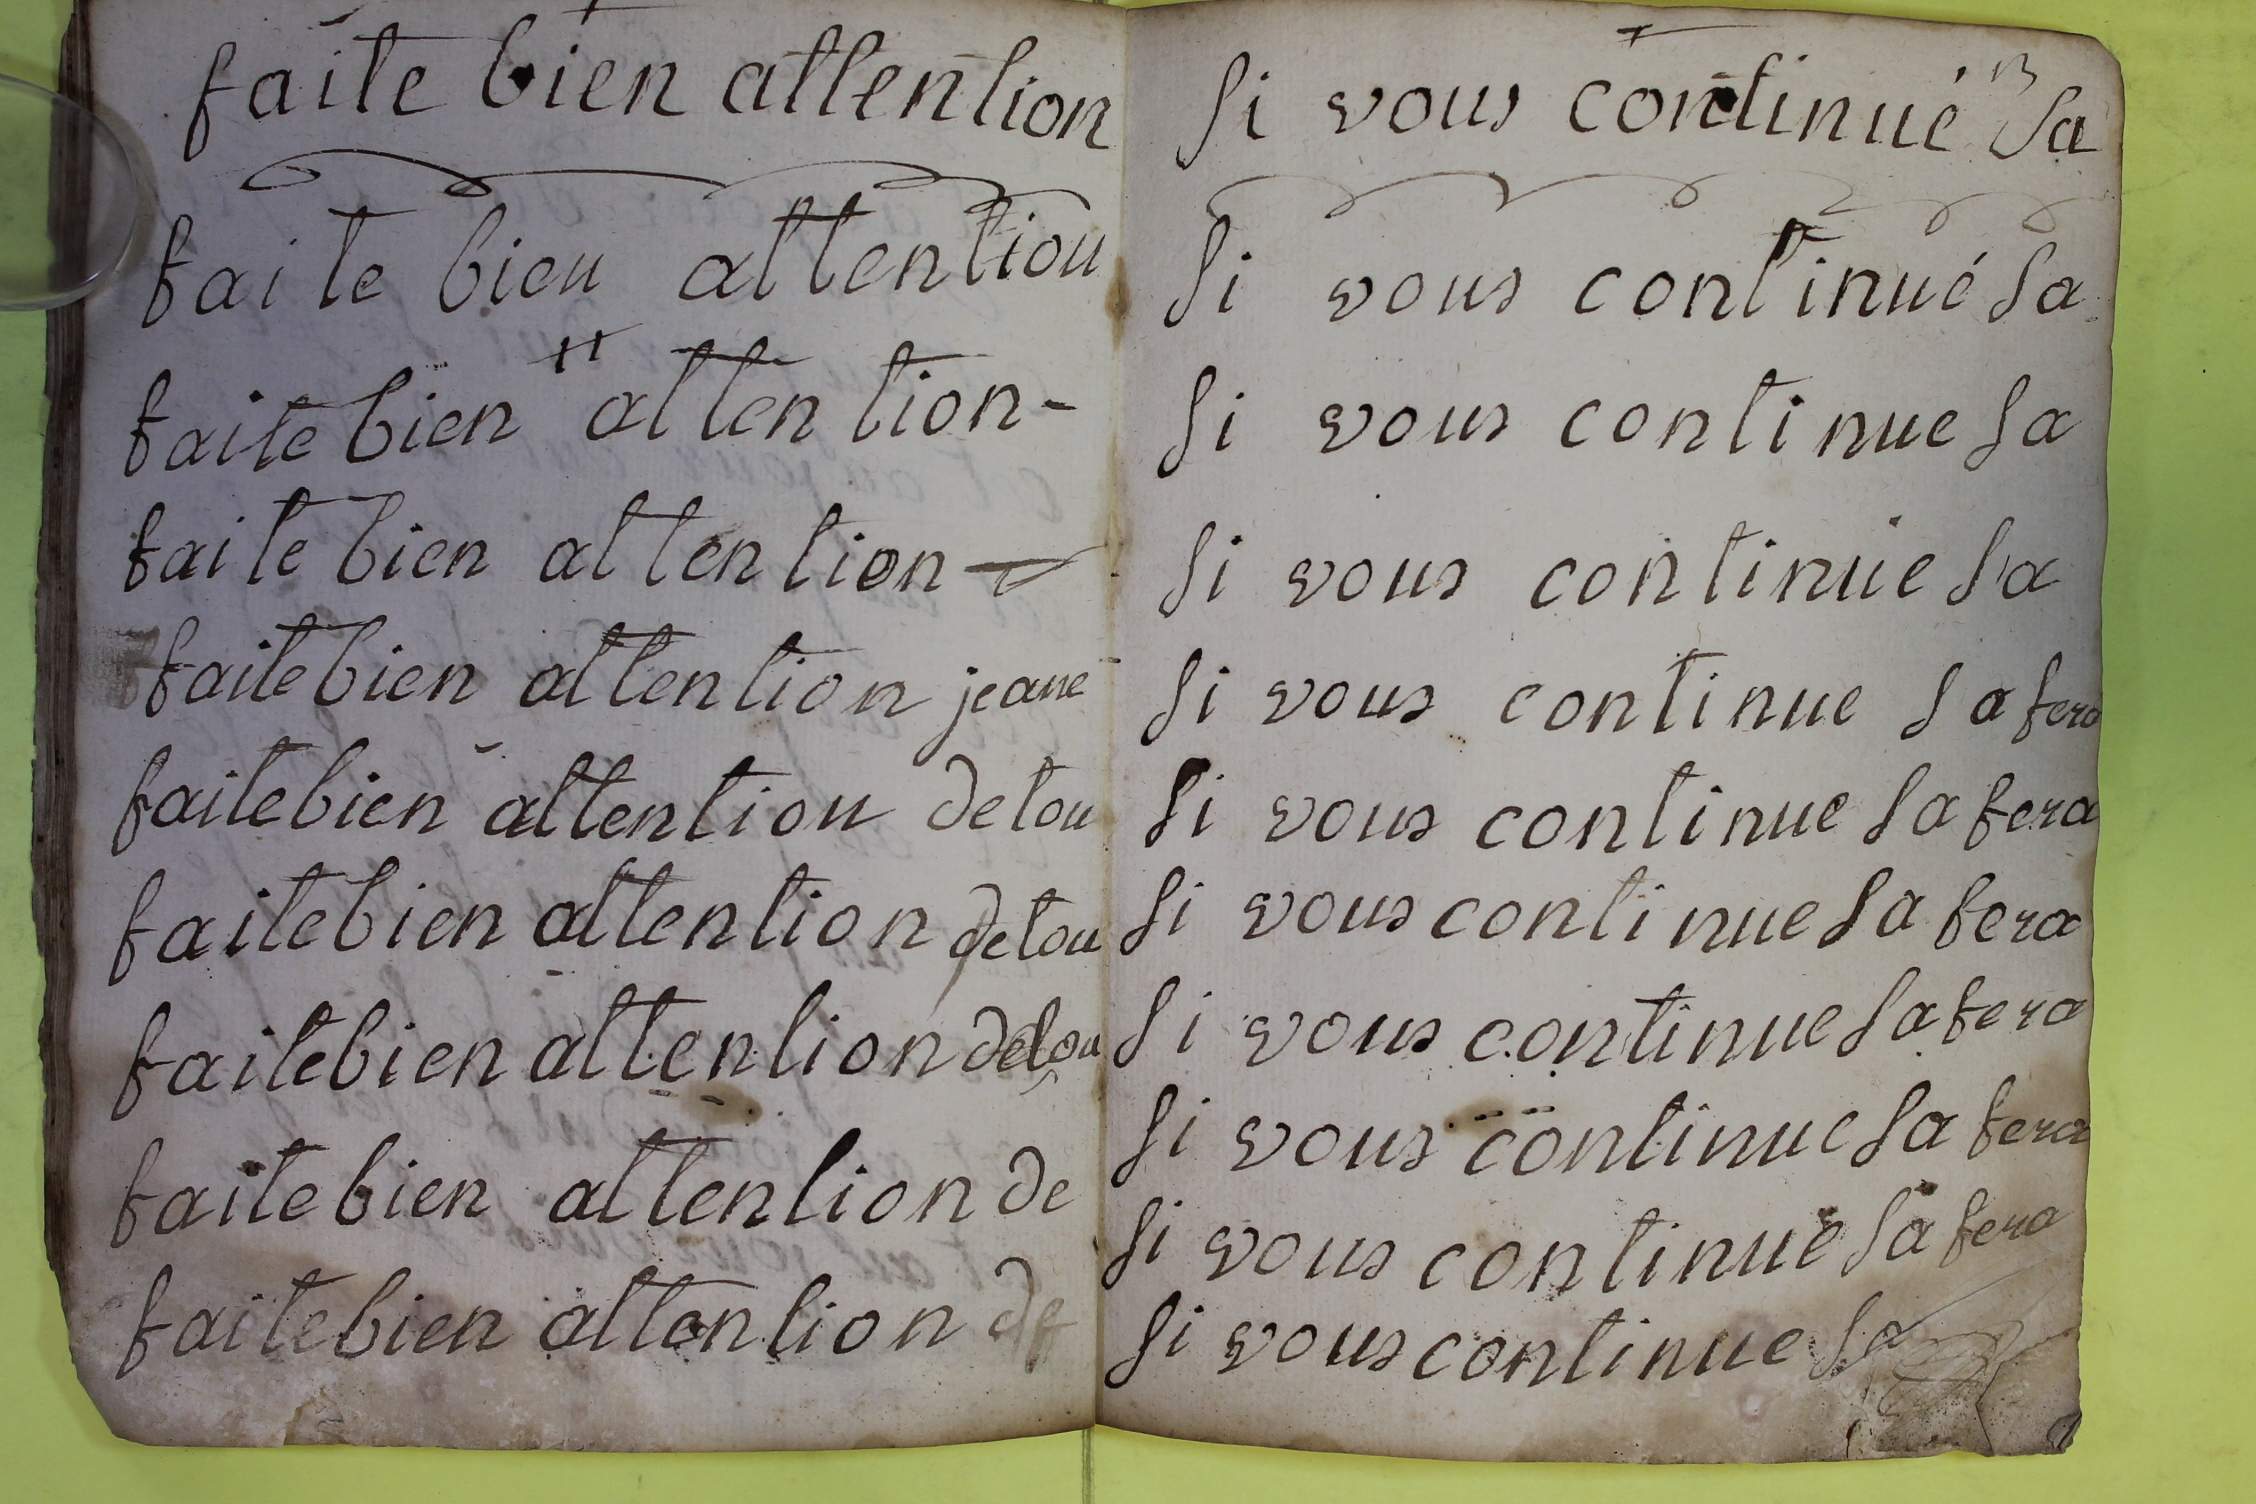 faite bien attention
faite bieu attentiou
faite bien attention-
faite bien attention
faite bien attention jeane
faite bien attentiou de tou
faite bien attention de tou
faite bien attention de tou
faite bien attention de
faite bien attention de
si vous continué sa
si vous continué sa
si vous continue sa
si vous continue sa
si vous continue sa fera
si vous continue sa fera
si vous continue sa fera
si vous continue sa fera
si vous continue sa fera
si vous continue sa fera
si vous continue sa